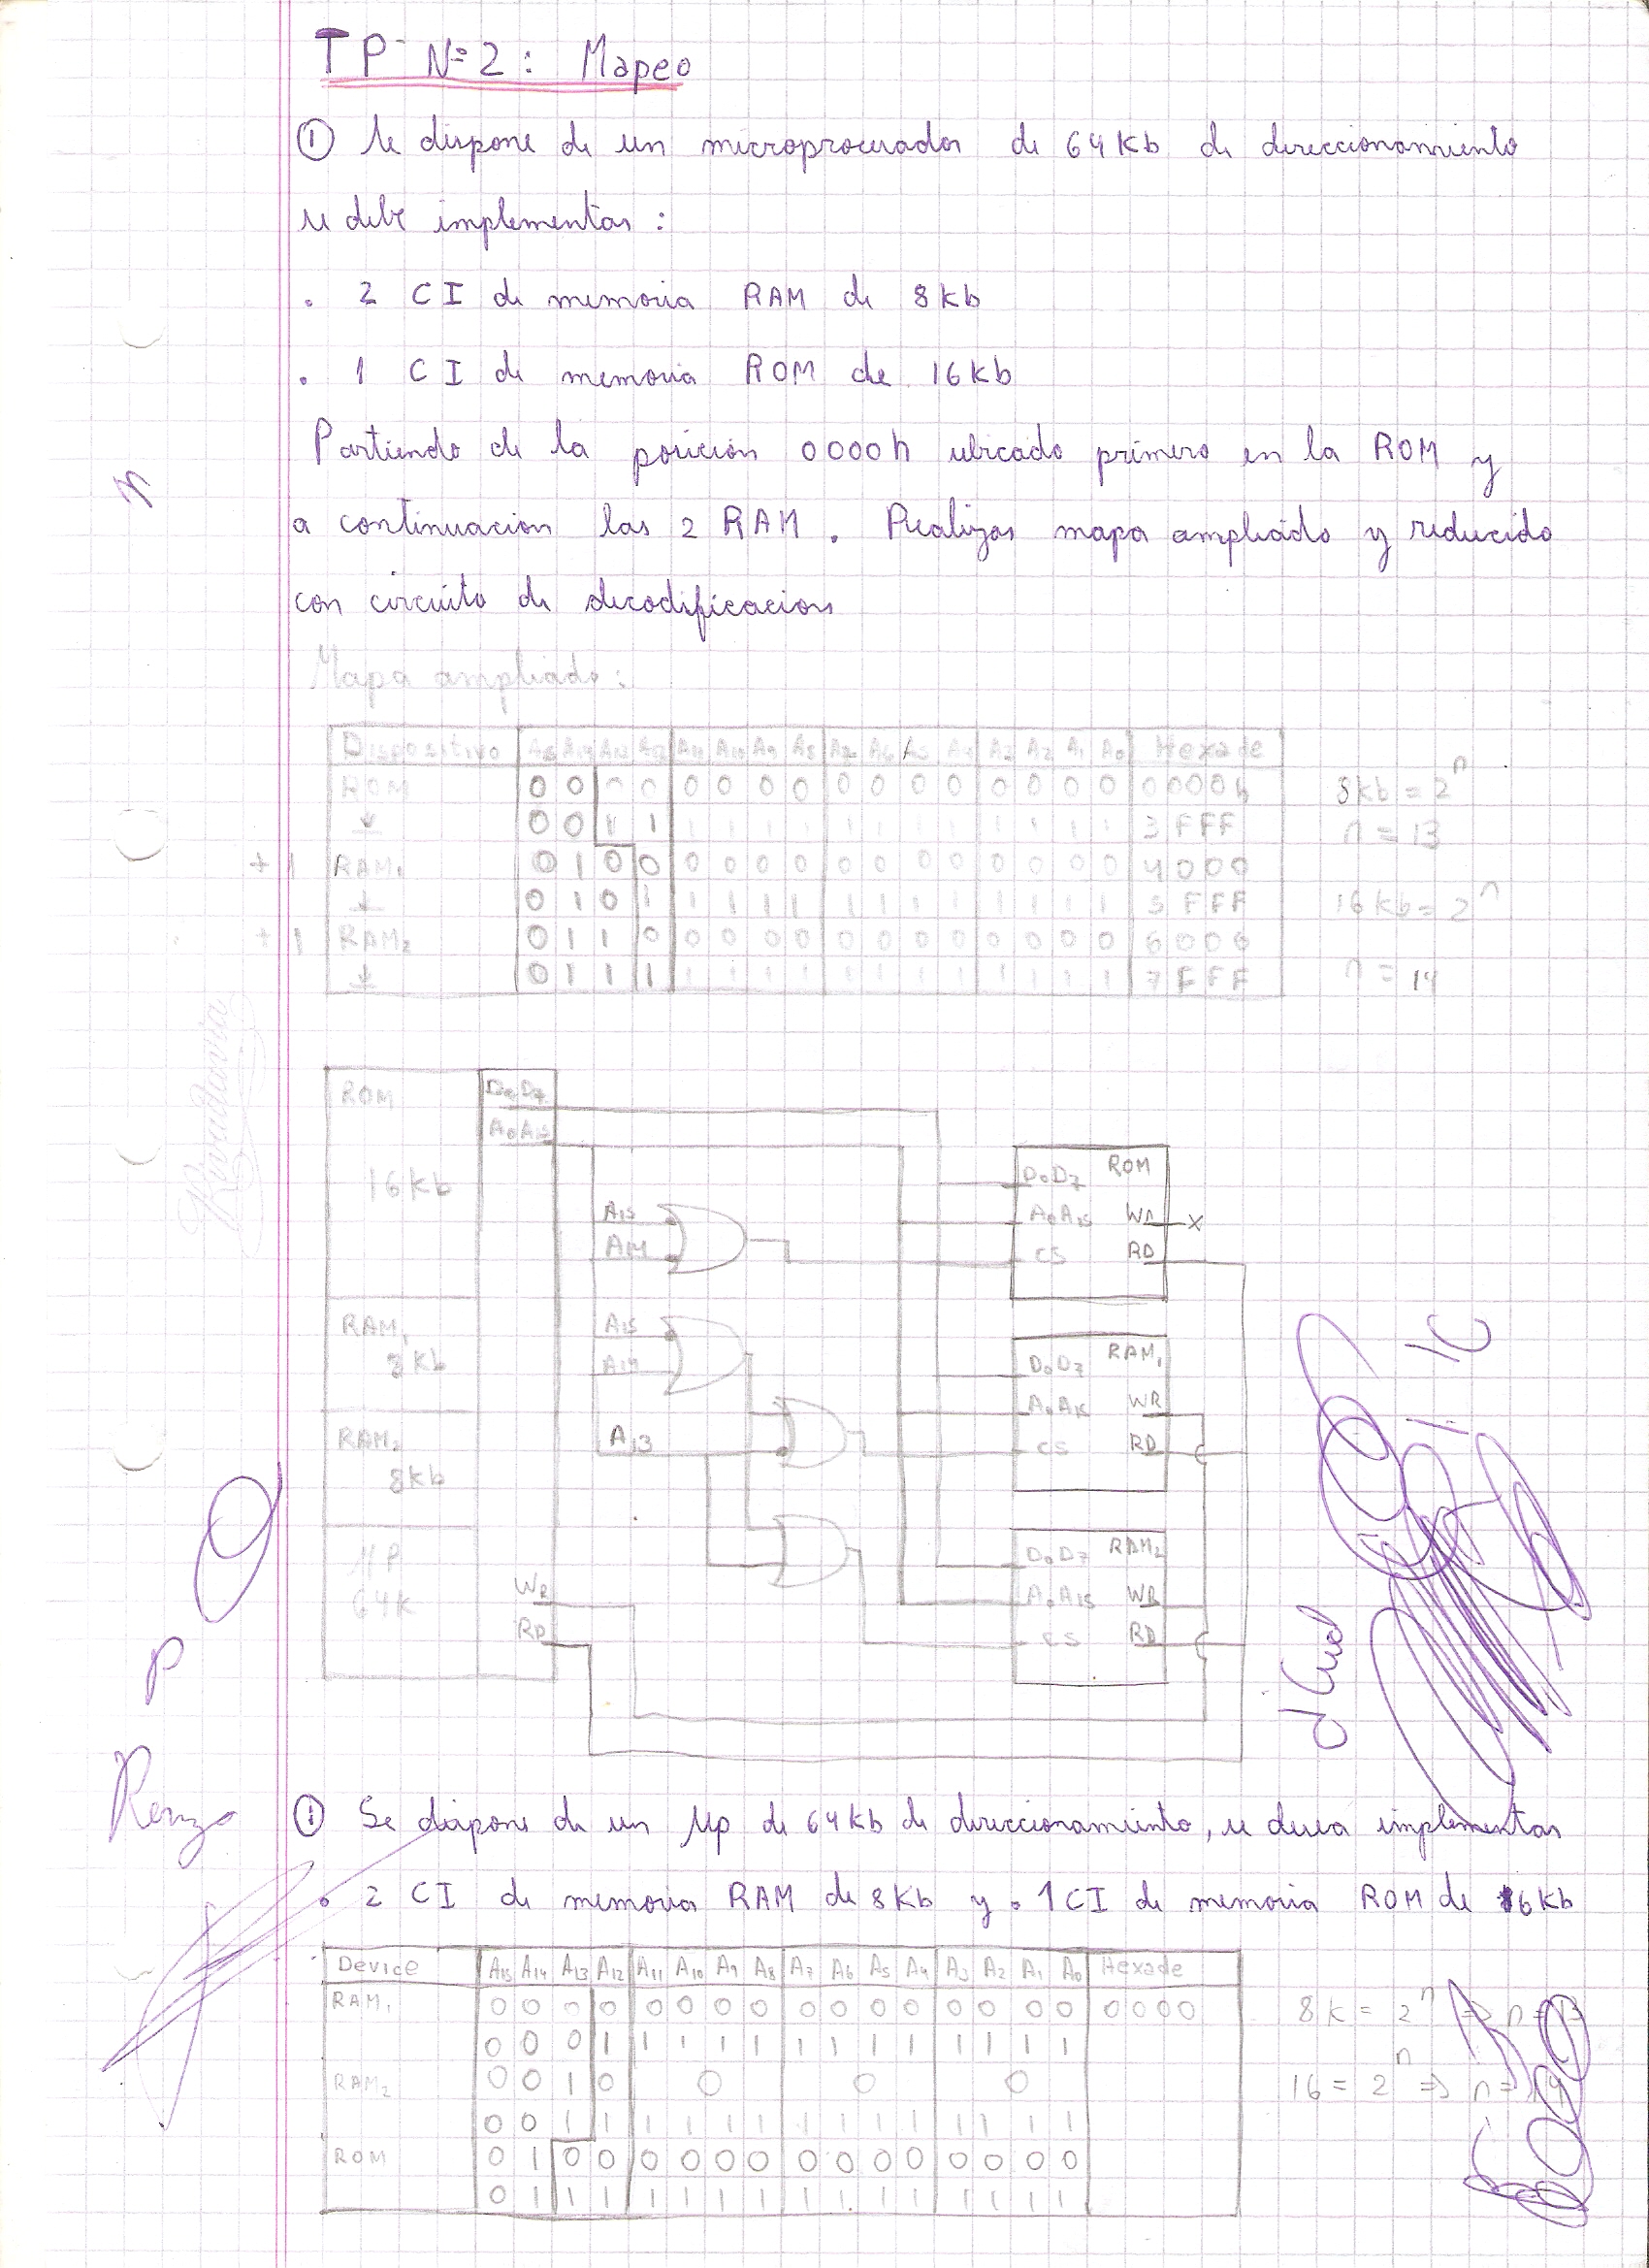 TP Nº2: Mapeo
① Se dispone de un microprocesador de 64Kb de direccionamiento
se debe implementar:
. 2 CI de memoria RAM de 8Kb
. 1 CI de memoria ROM de 16Kb
Partiendo de la posición 0000h ubicado primero en la ROM y
a continuacion las 2 RAM. Realizar mapa ampliado y reducido
con circuito de decodificacion
Mapa ampliado:
Dispositivo A15 A14 A13 A12 A11 A10 A9 A8 A7 A6 A5 A4 A3 A2 A1 A0 Hexade
ROM 0 0 0 0 0 0 0 0 0 0 0 0 0 0 0 0 0000h 8kb = 2^n
↓ 0 0 1 1 1 1 1 1 1 1 1 1 1 1 1 1 3FFF n = 13
+1 RAM1 0 1 0 0 0 0 0 0 0 0 0 0 0 0 0 0 4000
↓ 0 1 0 1 1 1 1 1 1 1 1 1 1 1 1 1 5FFF 16kb = 2^n
+1 RAM2 0 1 1 0 0 0 0 0 0 0 0 0 0 0 0 0 6000
↓ 0 1 1 1 1 1 1 1 1 1 1 1 1 1 1 1 7FFF n = 14
Rivadavia
ROM D0D7
A0A15
16kb
D0D7 ROM
A15 A0A15 WR x
A14 CS RD
RAM1 8kb
A15
A14
D0D7 RAM1
A0A15 WR
A13 CS RD
RAM2 8kb
D0D7 RAM2
A0A15 WR
CS RD
µP
64K
WR
RD
Renzo
① Se dispone de un µp de 64Kb de direccionamiento, se desea implementar
. 2 CI de memoria RAM de 8Kb y . 1 CI de memoria ROM de 16Kb
Device A15 A14 A13 A12 A11 A10 A9 A8 A7 A6 A5 A4 A3 A2 A1 A0 Hexade
RAM1 0 0 0 0 0 0 0 0 0 0 0 0 0 0 0 0 0000 8K = 2^n => n = 13
0 0 0 1 1 1 1 1 1 1 1 1 1 1 1 1
RAM2 0 0 1 0 0 0 0 16 = 2^n => n =
0 0 1 1 1 1 1 1 1 1 1 1 1 1 1 1
ROM 0 1 0 0 0 0 0 0 0 0 0 0 0 0 0 0
0 1 1 1 1 1 1 1 1 1 1 1 1 1 1 1